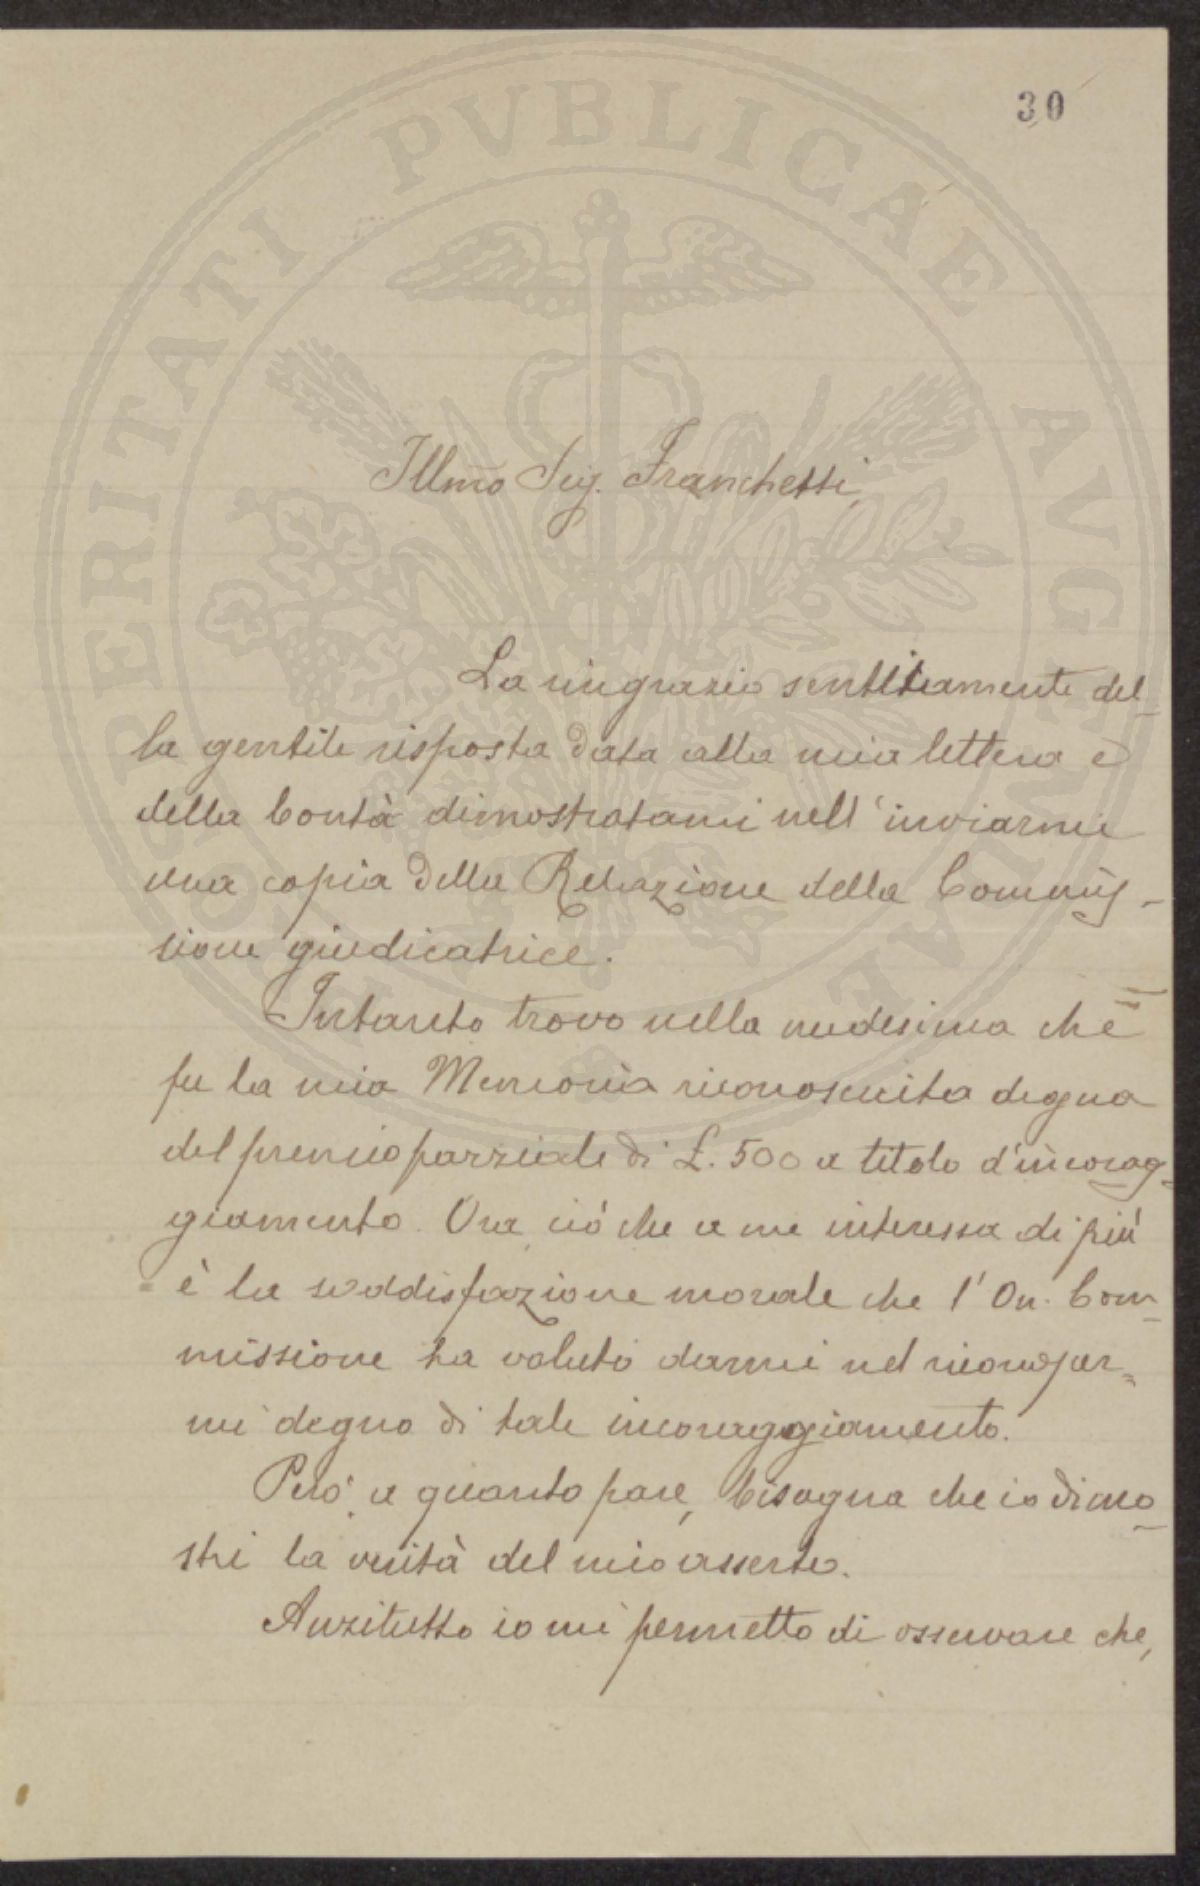 30
PROSPERITATI PVBLICAE AVGENDAE
Illmo Sig. Franchetti,
La ringrazio sentitamente del-
la gentile risposta data alla mia lettera e
della bontà dimostratami nell'inviarmi
una copia della Relazione della Commis-
sione giudicatrice.
Intanto trovo nella medesima che
fu la mia Memoria riconosciuta degna
del premio parziale di £. 500 a titolo d'incorag-
giamento. Ora ciò che a me interessa di più
è la soddisfazione morale che l'On. Com-
missione ha voluto darmi nel
mi degno di tale incoraggiamento.
Però a quanto pare, bisogna che io dimo-
stri la verità del mio asserto.
Anzitutto io mi permetto di osservare che,